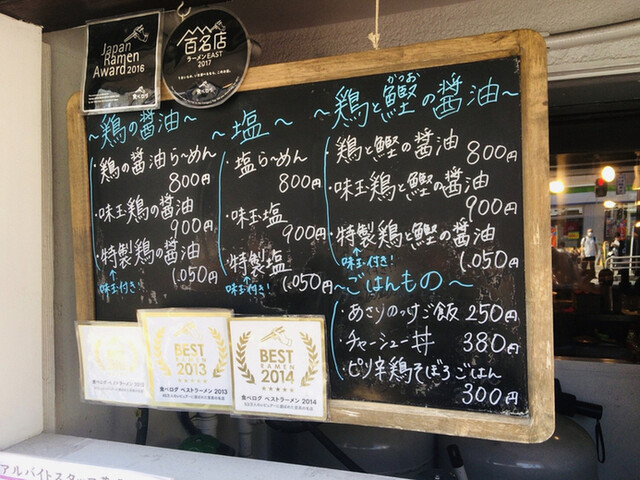 Japan
Ramen
Award 2016
食べログ
百名店
ラーメン EAST
2017
うまいもん、いま食べるなら、このお店。
食べログ
～鶏の醤油～
・鶏の醤油らーめん
800円
・味玉鶏の醤油
900円
・特製鶏の醤油
↑
味玉付き
1.050円
～塩～
・塩らーめん
800円
・味玉塩
900円
・特製塩
↑
味玉付き!
1.050円
かつお
～鶏と鰹の醤油～
・鶏と鰹の醤油
800円
・味玉鶏と鰹の醤油
900円
・特製鶏と鰹の醤油
↑
味玉付き!
1.050円
～ごはんもの～
・あさりのっけご飯 250円
・チャーシュー丼 380円
・ピリ辛鶏そぼろごはん
300円
BEST
RAMEN
2013
食べログ ベストラーメン 2013
BEST
RAMEN
2014
食べログ ベストラーメン 2014
アルバイトスタッフ